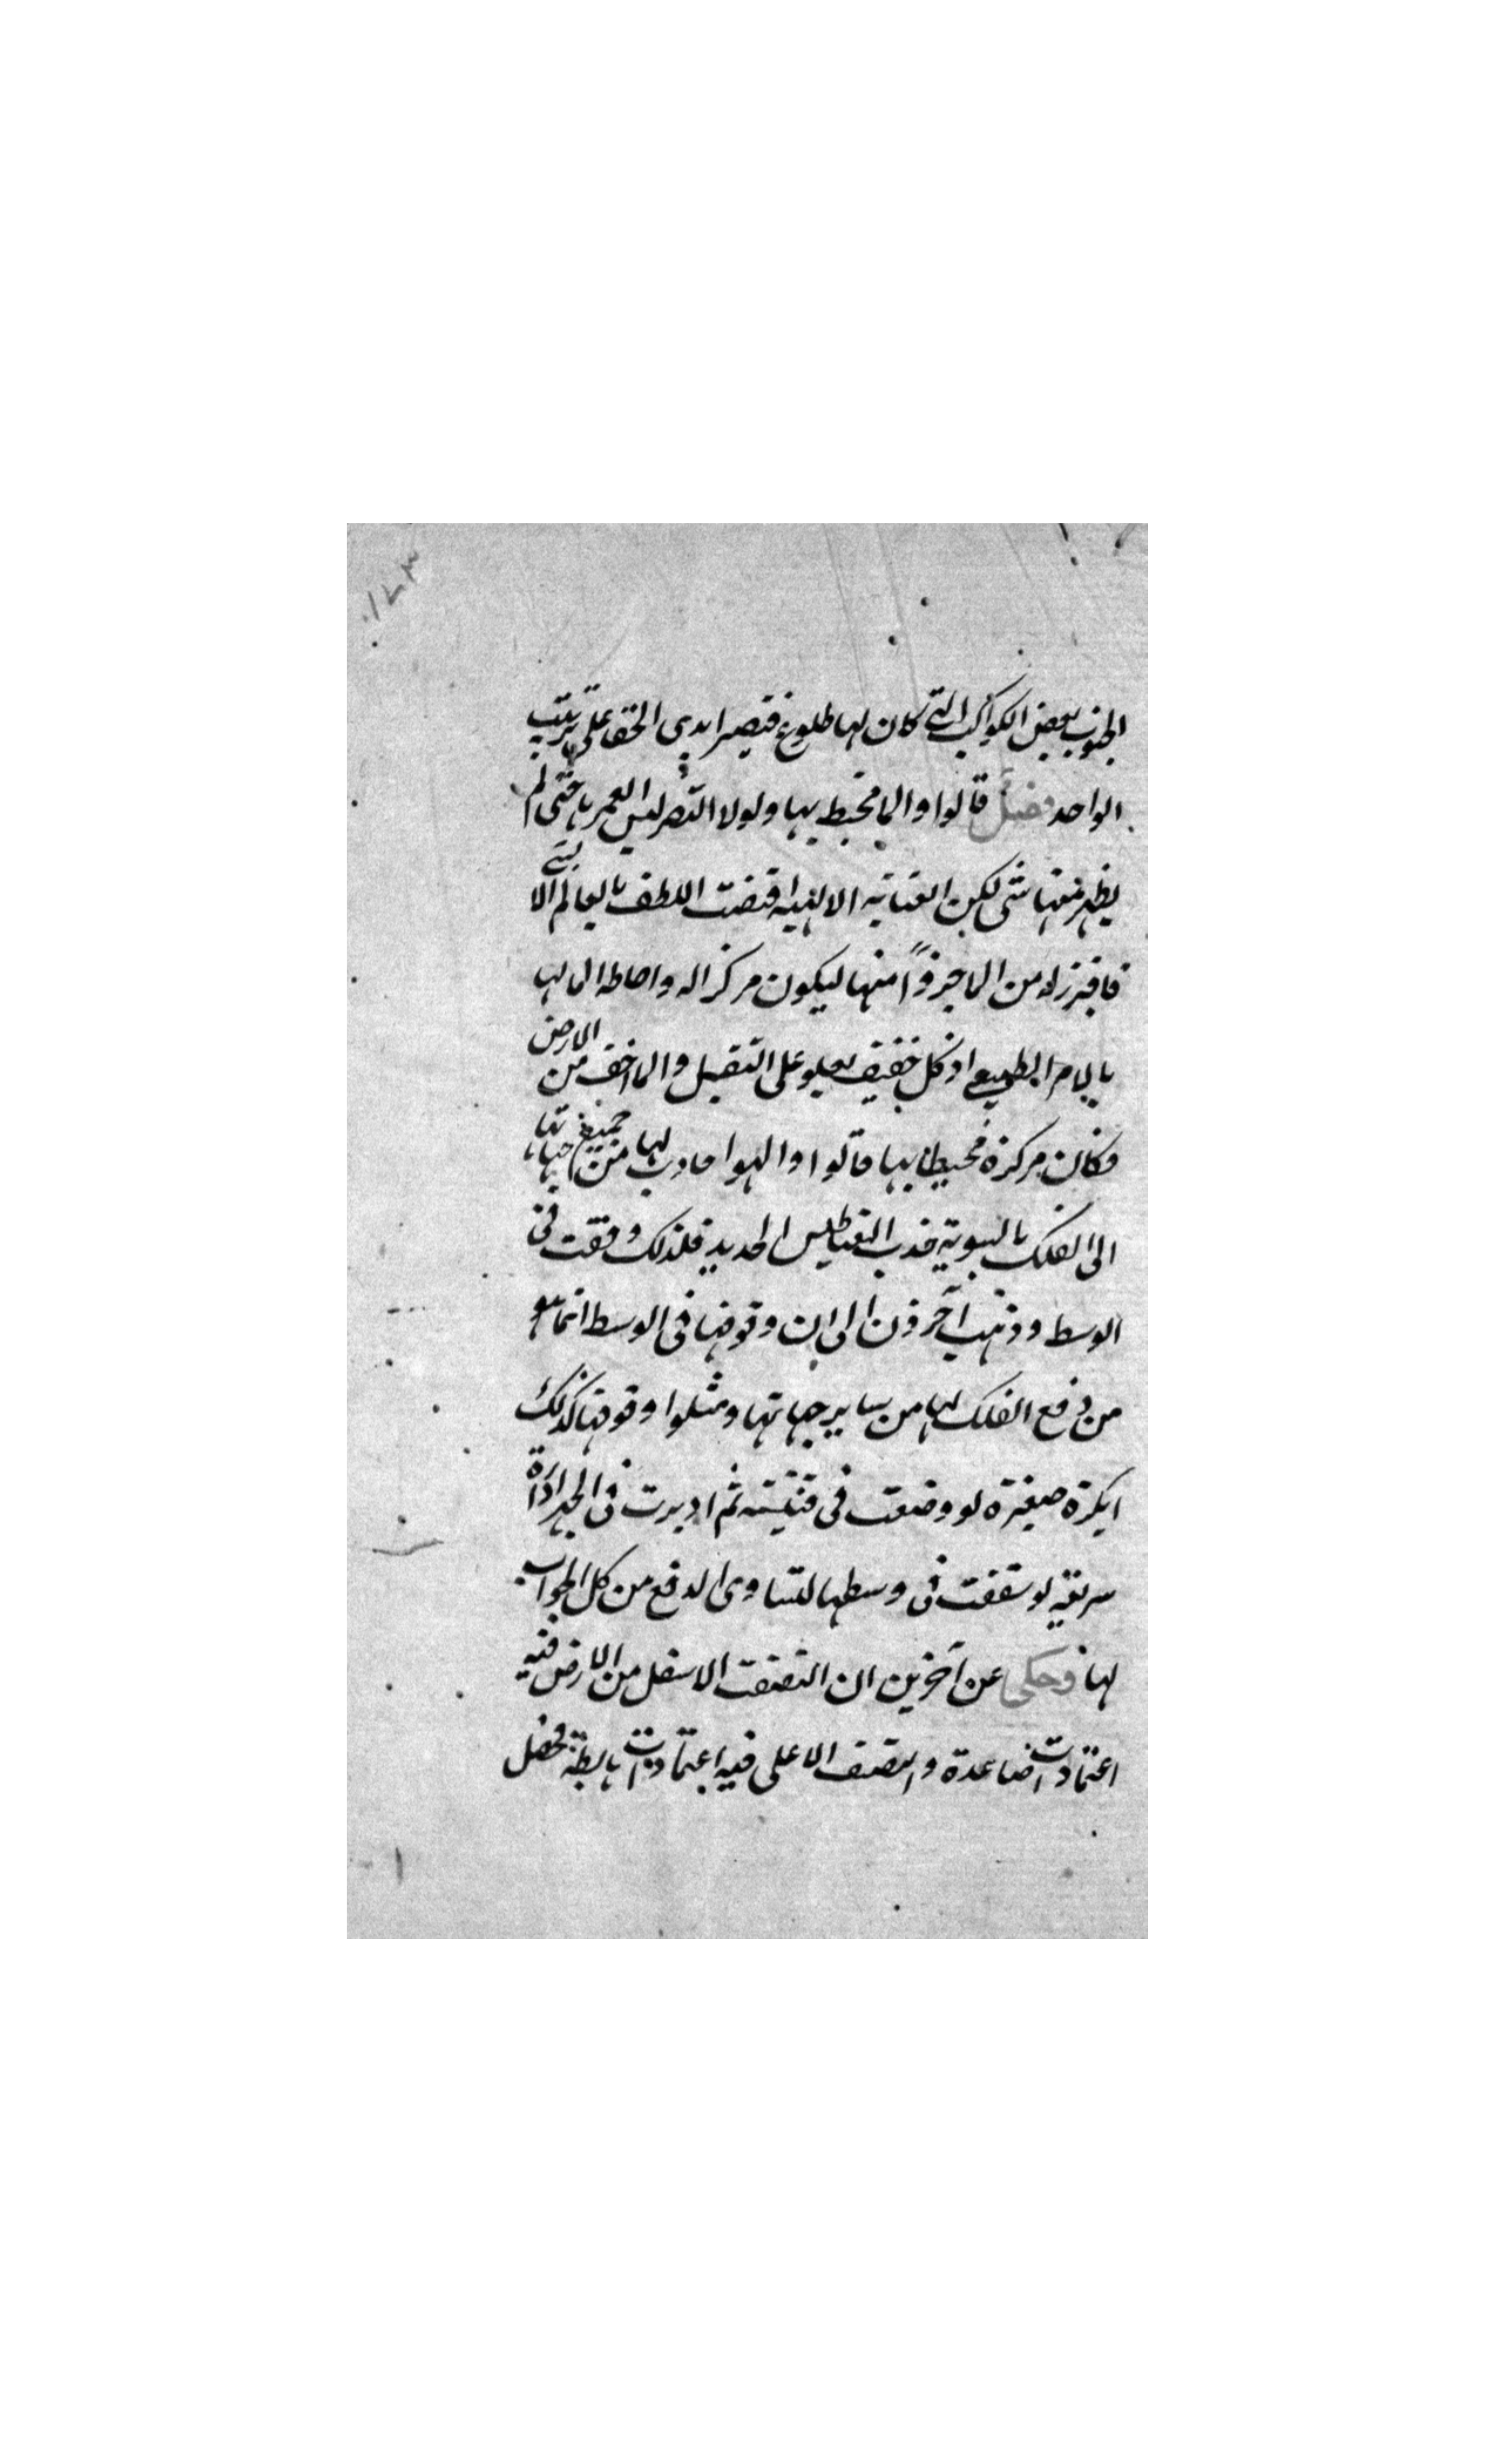 ١٧٣
الجنوب بعض الكواكب التى كان لها طلوع فتصير ابدى الخفا على ترتيب
الواحد فصل قالوا والما محيط بها ولولا التضريس لغمرها حتى لم
يظهر منها شى لكن العناية الالهية اقتضت اللطف بالعالم الا
فافرز له من الما جزوًا منها ليكون مركزا له واحاطه الما لها
بالامر الطبيعى اذ كل خفيف يعلو على الثقيل والما اخف من الارض
فكان مركزه محيطا بها قالوا والهوا جاذب لها من جميع جهاتها
الى الفلك بالسوية جذب المغناطيس الحديد فلذلك وقفت فى
الوسط وذهب آخرون الى ان وقوفها فى الوسط انما هو
من دفع الفلك لها من ساير جهاتها ومثلوا وقوفها كذلك
بكرة صغيرة لو وضعت فى قنينة ثم اديرت فى الجهر ادارة
سريعة لوقفت فى وسطها لتساوى الدفع من كل الجوانب
لها وحكى عن آخرين ان النصف الاسفل من الارض فيه
اعتمادات صاعدة والنصف الاعلى فيه اعتمادات هابطة فحصل